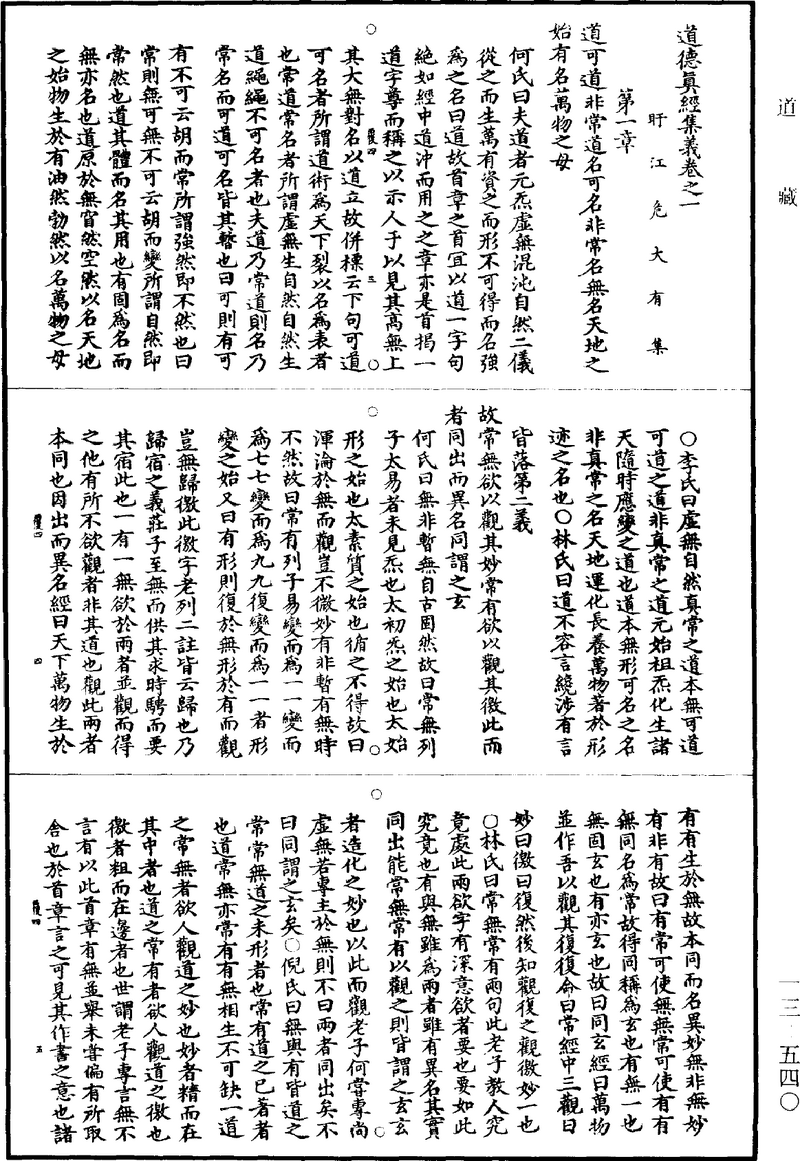 道藏
道德眞經集義卷之一
盱江危大有集
第一章
道可道非常道名可名非常名無名天地之
始有名萬物之母
何氏曰夫道者元炁虛無混沌自然二儀
從之而生萬有資之而形不可得而名強
爲之名曰道故首章之首宜以道一字句
絕如經中道沖而用之之章亦是首揭一
道字尊而稱之以示人于以見其高無上
其大無對名以道立故併標云下句可道
可名者所謂道術爲天下裂以名爲表者
也常道常名者所謂虛無生自然自然生
道繩繩不可名者也夫道乃常道則名乃
常名而可道可名皆其暫也曰可則有可
有不可云胡而常所謂強然即不然也曰
常則無可無不可云胡而變所謂自然即
常然也道其體而名其用也有固爲名而
無亦名也道原於無窅然空然以名天地
之始物生於有油然勃然以名萬物之母
○李氏曰虛無自然真常之道本無可道
可道之道非真常之道元始祖炁化生諸
天隨時應變之道也道本無形可名之名
非真常之名天地運化長養萬物著於形
迹之名也○林氏曰道不容言纔涉有言
皆落第二義
故常無欲以觀其妙常有欲以觀其徼此兩
者同出而異名同謂之玄
何氏曰無非暫無自古固然故曰常無列
子太易者未見炁也太初炁之始也太始
形之始也太素質之始也循之不得故曰
渾淪於無而觀豈不微妙有非暫有無時
不然故曰常有列子易變而爲一一變而
爲七七變而爲九九復變而爲一一者形
變之始又曰有形則復於無形於有而觀
豈無歸徼此徼字老列二註皆云歸也乃
歸宿之義莊子至無而供其求時騁而要
其宿此也一有一無欲於兩者並觀而得
之他有所不欲觀者非其道也觀此兩者
本同也因出而異名經曰天下萬物生於
有有生於無故本同而名異妙無非無妙
有非有故曰有常可使無無常可使有有
無同名爲常故得同稱爲玄也有無一也
無固玄也有亦玄也故曰同玄經曰萬物
並作吾以觀其復復命曰常經中三觀曰
妙曰徼曰復然後知觀復之觀徼妙一也
○林氏曰常無常有兩句此老子教人究
竟處此兩欲字有深意欲者要也要如此
究竟也有與無雖爲兩者雖有異名其實
同出能常無常有以觀之則皆謂之玄玄
者造化之妙也以此而觀老子何嘗專尚
虛無若專主於無則不曰兩者同出矣不
曰同謂之玄矣○倪氏曰無與有皆道之
常常無道之未形者也常有道之已著者
也道常無亦常有有無相生不可缺一道
之常無者欲人觀道之妙也妙者精而在
其中者也道之常有者欲人觀道之徼也
徼者粗而在邊者也世謂老子專言無不
言有以此首章有無並舉未嘗偏有所取
舍也於首章言之可見其作書之意也諸
三
四
五
一三·五四〇